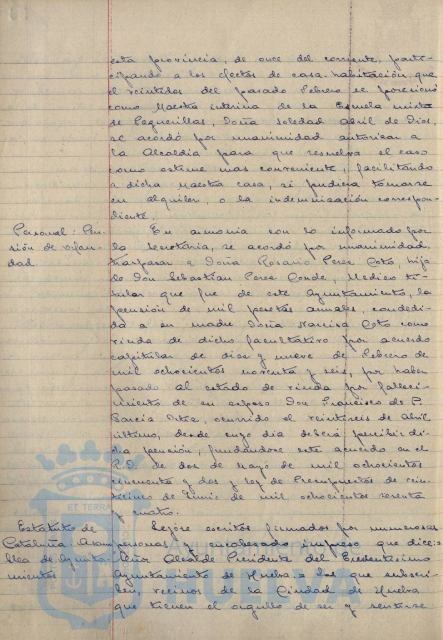 esta provincia, de once del corriente, parti-
cipando a los efectos de casa-habitación, que
el veintidos del pasado Febrero se posesionó
como Maestra interina de la Escuela mixta
de Peguerillas, Doña Soledad Abril de Dios,
se acordó por unanimidad autorizar a
la Alcaldía para que resuelva el caso
como estime mas conveniente, facilitando
a dicha Maestra casa, si pudiera tomarse
en alquiler, o la indemnización correspon-
diente.
Personal: Pen-
sión de orfan-
dad
En armonía con lo informado por
la Secretaría, se acordó por unanimidad
traspasar a Doña Rosario Perez Coto, hija
de Don Sebastian Perez Conde, Medico ti-
tular que fue de este Ayuntamiento, la
pensión de mil pesetas anuales, concedi-
da a su madre Doña Narcisa Coto como
viuda de dicho facultativo por acuerdo
capitular de diez y nueve de Febrero de
mil ochocientos noventa y seis, por haber
pasado al estado de viuda por falleci-
miento de su esposo Don Francisco de P.
García, ocurrido el veintiseis de Abril
último, desde cuyo dia deberá percibir di-
cha pensión, fundandose este acuerdo en el
R.D. de dos de Mayo de mil ochocientos
cincuenta y dos y ley de Presupuestos de vein-
ticinco de Junio de mil ochocientos sesenta
y cuatro.
Estatuto de
Cataluña. Asam-
blea de Ayunta-
mientos
Leyose escritos firmados por numerosas
personas y encabezado impreso que dice:
Señor Alcalde Presidente del Excelentisimo
Ayuntamiento de Huelva. Los que subscri-
ben, vecinos de la Ciudad de Huelva
que tienen el orgullo de ser y sentirse
ET TERRA